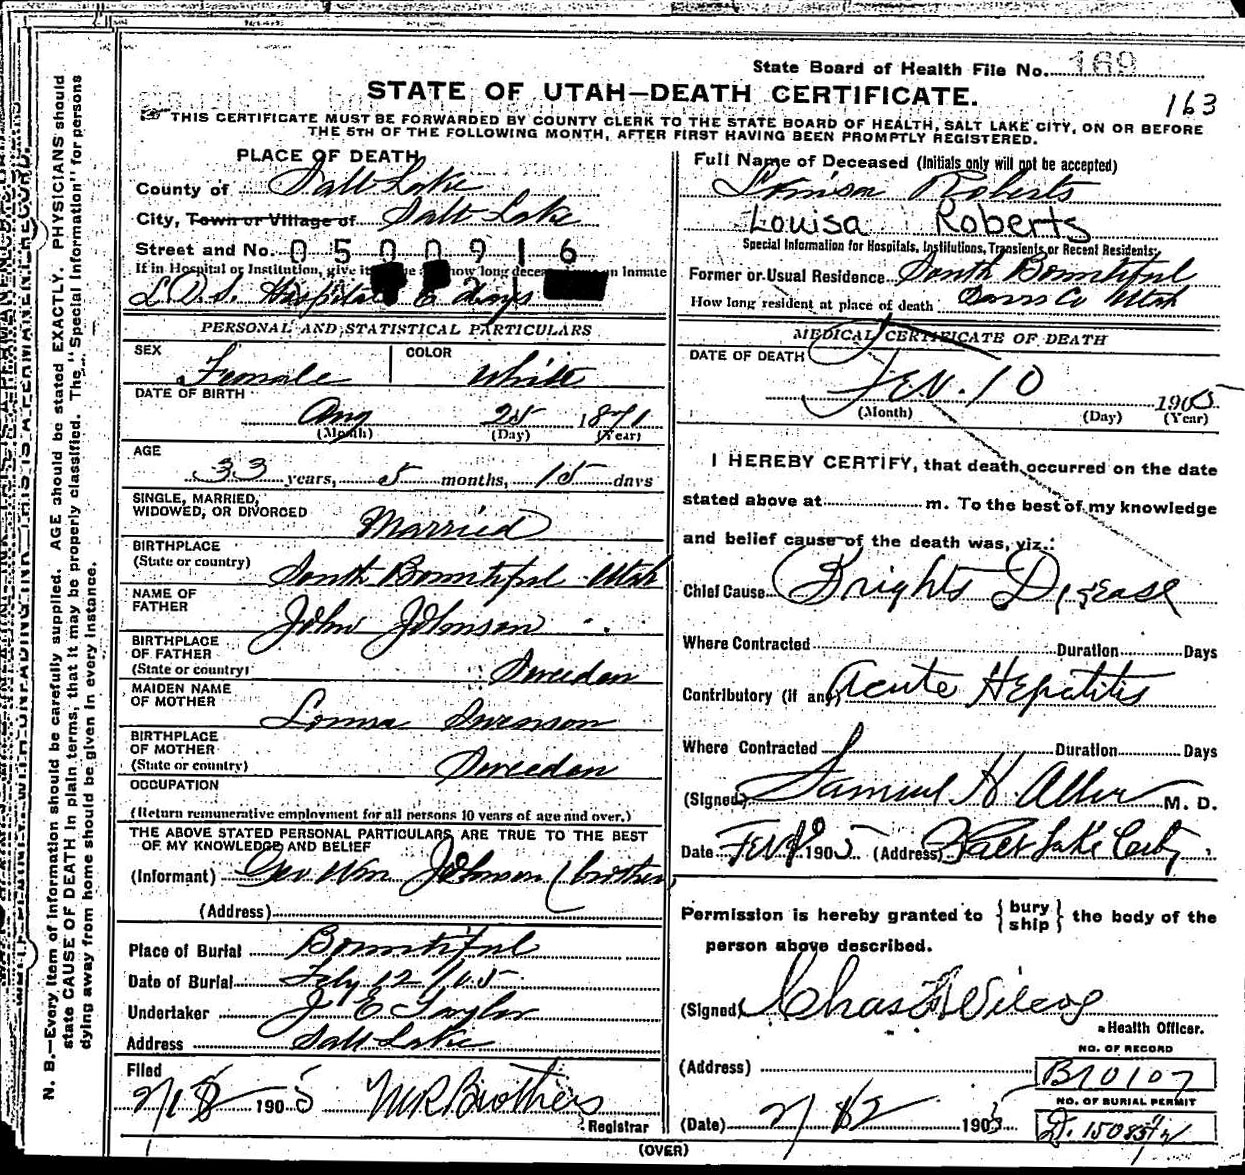 State Board of Health File No. 169
163
STATE OF UTAH—DEATH CERTIFICATE.
THIS CERTIFICATE MUST BE FORWARDED BY COUNTY CLERK TO THE STATE BOARD OF HEALTH, SALT LAKE CITY, ON OR BEFORE
THE 5TH OF THE FOLLOWING MONTH, AFTER FIRST HAVING BEEN PROMPTLY REGISTERED.
N. B.—Every item of information should be carefully supplied. AGE should be stated EXACTLY. PHYSICIANS should
state CAUSE OF DEATH in plain terms, that it may be properly classified. The "Special Information" for persons
dying away from home should be given in every instance.
PLACE OF DEATH
County of Salt Lake
City, Town or Village of Salt Lake
Street and No. 0500916
If in Hospital or Institution, give how long an inmate
L.D.S. Hospital 6 days
PERSONAL AND STATISTICAL PARTICULARS
SEX Female COLOR White
DATE OF BIRTH
Aug 25 1871
(Month) (Day) (Year)
AGE
33 years, 5 months, 15 days
SINGLE, MARRIED,
WIDOWED, OR DIVORCED Married
BIRTHPLACE
(State or country) South Bountiful Utah
NAME OF
FATHER John Johnson
BIRTHPLACE
OF FATHER
(State or country) Sweedon
MAIDEN NAME
OF MOTHER Louisa Swenson
BIRTHPLACE
OF MOTHER
(State or country) Sweedon
OCCUPATION
(Return remunerative employment for all persons 10 years of age and over.)
THE ABOVE STATED PERSONAL PARTICULARS ARE TRUE TO THE BEST
OF MY KNOWLEDGE AND BELIEF
(Informant) Geo Wm Johnson (brother
(Address)
Place of Burial Bountiful
Date of Burial Feby 12/05
Undertaker J E Taylor
Address Salt Lake
Filed
1905 M R Brothers
Registrar
Full Name of Deceased (Initials only will not be accepted)
Louisa Roberts
Louisa Roberts
Special Information for Hospitals, Institutions, Transients or Recent Residents:
Former or Usual Residence South Bountiful
How long resident at place of death Davis Co Utah
MEDICAL CERTIFICATE OF DEATH
DATE OF DEATH
Feb. 10 1905
(Month) (Day) (Year)
I HEREBY CERTIFY, that death occurred on the date
stated above at m. To the best of my knowledge
and belief cause of the death was, viz.:
Chief Cause Brights Disease
Where Contracted Duration Days
Contributory (if any) Acute Hepatitis
Where Contracted Duration Days
(Signed) Samuel H. Allen M. D.
Date 1905 (Address) Salt Lake City
Permission is hereby granted to {bury
ship} the body of the
person above described.
(Signed) Chas Wilcox
Health Officer.
(Address)
NO. OF RECORD
B10107
NO. OF BURIAL PERMIT
(Date) 2/12 1905
(OVER)